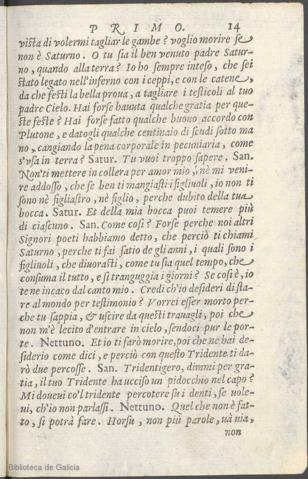 PRIMO. 14
vista di volermi tagliar le gambe? voglio morire se
non è Saturno. O tu sia il ben venuto padre Satur-
no, quando alla terra? Io ho sempre inteso, che sei
stato legato nell'inferno con i ceppi, e con le catene,
da che festi la bella proua, a tagliare i testicoli al tuo
padre Cielo. Hai forse hauuta qualche gratia per que-
ste feste? Hai forse fatto qualche buono accordo con
Plutone, e datogli qualche centinaio di scudi sotto ma
no, cangiando la pena corporale in pecuniaria, come
s'usa in terra? Satur. Tu vuoi troppo sapere. San.
Non ti mettere in collera per amor mio, nè mi veni-
re addosso, che se ben ti mangiasti i figliuoli, io non ti
sono nè figliastro, nè figlio, perche dubito della tua
bocca. Satur. Et della mia bocca puoi temere più
di ciascuno. San. Come così? Forse perche noi altri
Signori poeti habbiamo detto, che perciò ti chiami
Saturno, perche ti fai satio de gli anni, i quali sono i
figliuoli, che diuorasti, come tu sia quel tempo, che
consuma il tutto, e si tranguggia i giorni? Se così è, io
te ne incaco dal canto mio. Credi ch'io desideri di sta-
re al mondo per testimonio? Vorrei esser morto per-
che tu sappia, & uscire da questi trauagli, poi che
non m'è lecito d'entrare in cielo, sendoci pur le por-
te. Nettuno. Et io ti farò morire, poi che ne hai de-
siderio come dici, e perciò con questo Tridente ti da-
rò due percosse. San. Tridentigero, dimmi per gra-
tia, il tuo Tridente ha ucciso un pidocchio nel capo?
Mi doueui co'l tridente percotere su i denti, se uole-
ui, ch'io non parlassi. Nettuno. Quel che non è fat-
to, si potrà fare. Horsu, non più parole, uà uia,
non
Biblioteca de Galicia